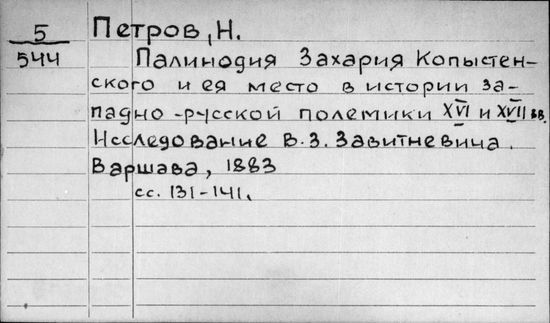 5 Петров, Н.
544 Палинодия Захария Копыстен-
ского и ея место в истории за-
падно-русской полемики XVI и XVII вв.
Исследование В.З. Завитневича.
Варшава, 1883
сс. 131-141.